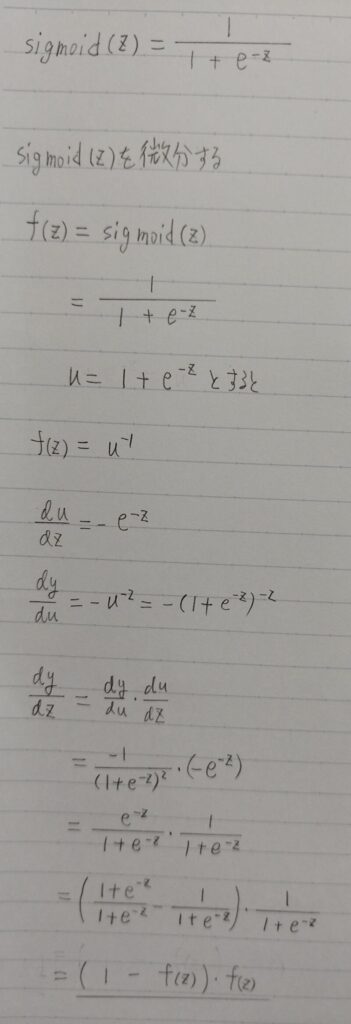 sigmoid(z) = 1 / (1 + e^-z)
sigmoid(z)を微分する
f(z) = sigmoid(z)
= 1 / (1 + e^-z)
u = 1 + e^-z とすると
f(z) = u^-1
du/dz = - e^-z
dy/du = -u^-2 = -(1+e^-z)^-2
dy/dz = dy/du · du/dz
= -1 / (1+e^-z)^2 · (-e^-z)
= e^-z / (1+e^-z) · 1 / (1+e^-z)
= ((1+e^-z) / (1+e^-z) - 1 / (1+e^-z)) · 1 / (1+e^-z)
= (1 - f(z)) · f(z)